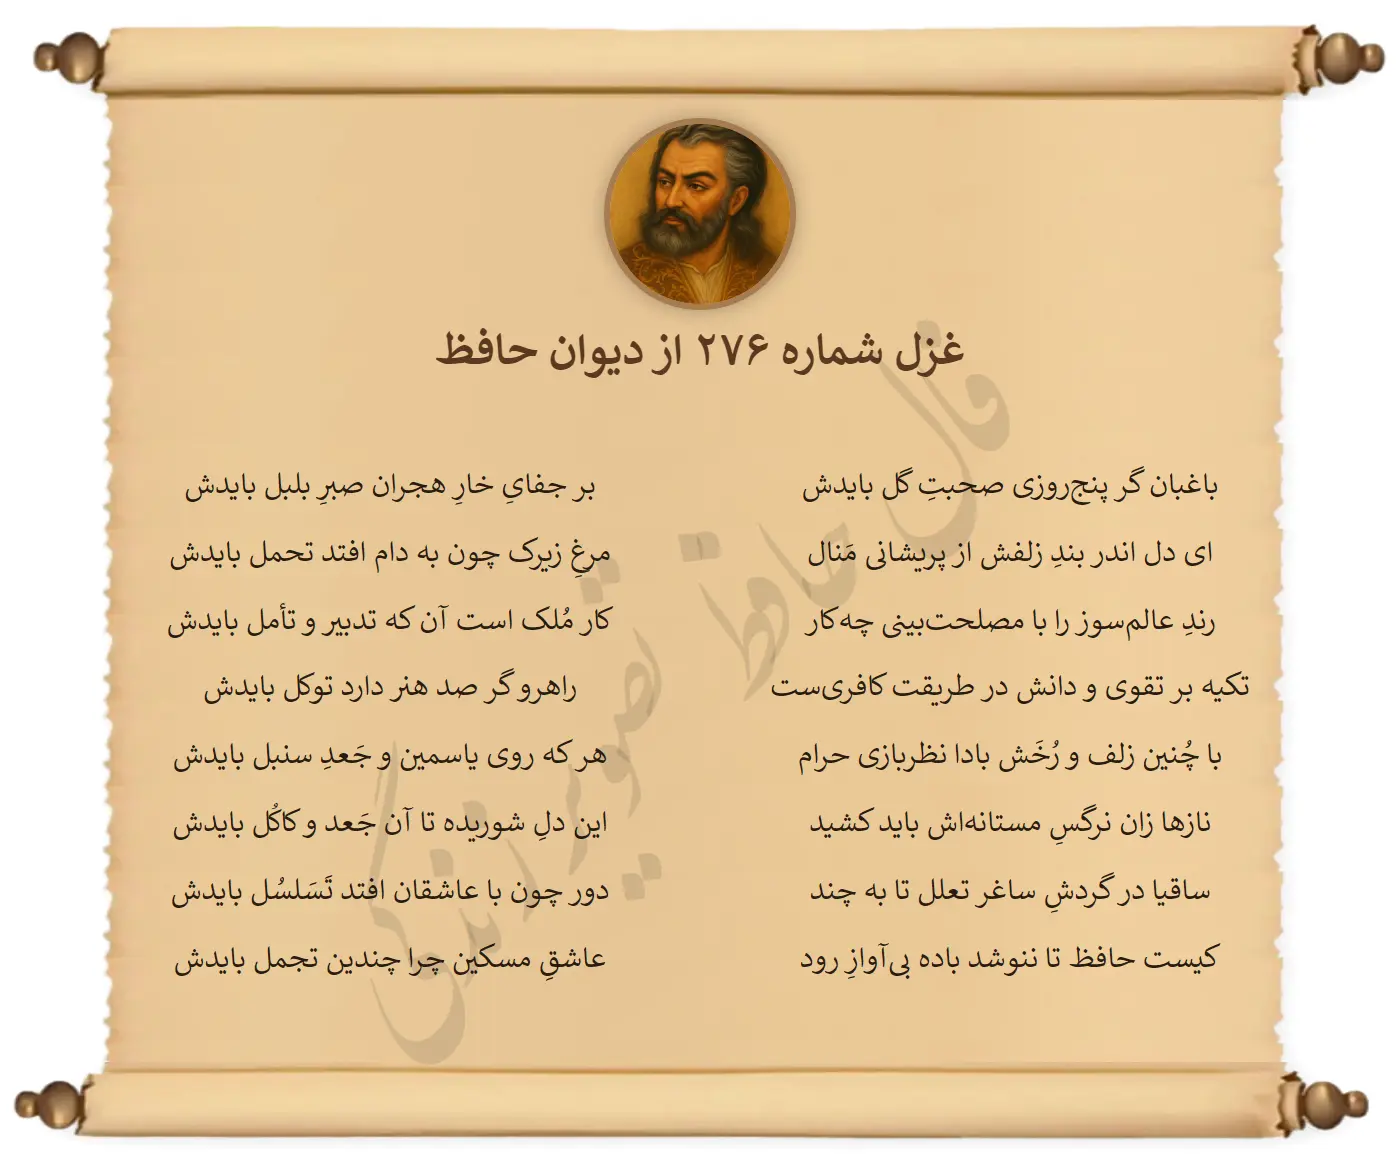 غزل شماره ۲۷۶ از دیوان حافظ
باغبان گر پنج‌روزی صحبتِ گل بایدش
بر جفایِ خارِ هجران صبرِ بلبل بایدش
ای دل اندر بندِ زلفش از پریشانی مَنال
مرغِ زیرک چون به دام افتد تحمل بایدش
رندِ عالم‌سوز را با مصلحت‌بینی چه‌کار
کار مُلک است آن که تدبیر و تأمل بایدش
تکیه بر تقوی و دانش در طریقت کافری‌ست
راهرو گر صد هنر دارد توکل بایدش
با چُنین زلف و رُخَش بادا نظربازی حرام
هر که روی یاسمین و جَعدِ سنبل بایدش
نازها زان نرگسِ مستانه‌اش باید کشید
این دلِ شوریده تا آن جَعد و کاکُل بایدش
ساقیا در گردشِ ساغر تعلل تا به چند
دور چون با عاشقان افتد تَسَلسُل بایدش
کیست حافظ تا ننوشد باده بی‌آوازِ رود
عاشقِ مسکین چرا چندین تجمل بایدش
فال حافظ تصویر زندگی